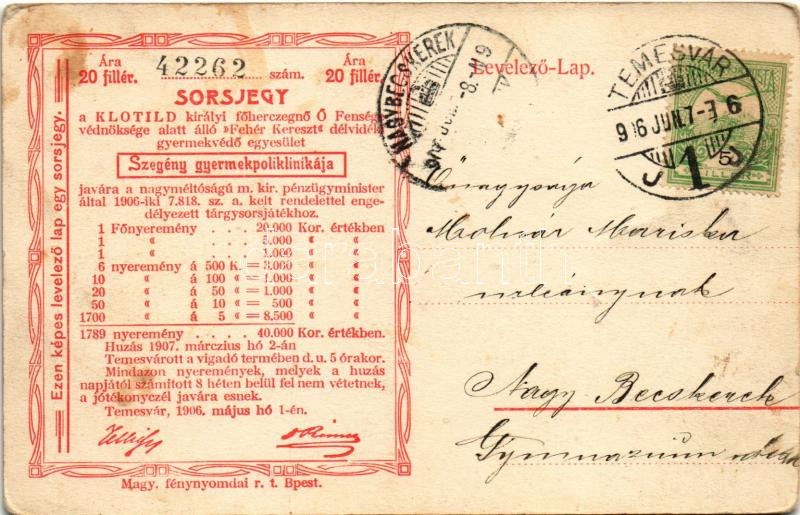 Ára
20 fillér.
42262 szám.
Ára
20 fillér.
SORSJEGY
a KLOTILD királyi főherczegnő Ő Fensége
védnöksége alatt álló »Fehér Kereszt« délvidéki
gyermekvédő egyesület
Szegény gyermekpoliklinikája
javára a nagyméltóságú m. kir. pénzügyminister
által 1906-iki 7.818. sz. a. kelt rendelettel enge-
délyezett tárgysorsjátékhoz.
1 Főnyeremény . . . 20.000 Kor. értékben
1 « . . . . 5.000 « «
1 « . . . . 1.000 « «
6 nyeremény á 500 K. = 3.000 « «
10 « á 100 « = 1.000 « «
20 « á 50 « = 1.000 « «
50 « á 10 « = 500 « «
1700 « á 5 « = 8.500 « «
1789 nyeremény . . . . 40.000 Kor. értékben.
Huzás 1907. márczius hó 2-án
Temesvárott a vigadó termében d. u. 5 órakor.
Mindazon nyeremények, melyek a huzás
napjától számitott 8 héten belül fel nem vétetnek,
a jótékonyczél javára esnek.
Temesvár, 1906. május hó 1-én.
Magy. fénynyomdai r. t. Bpest.
Ezen képes levelező lap egy sorsjegy.
Levelező-Lap.
NAGYBECSKEREK
TEMESVÁR
906 JUN. 7
1
5
FILLÉR
Molnár Mariska
Nagy Becskerek
Gymnazium
darabanth